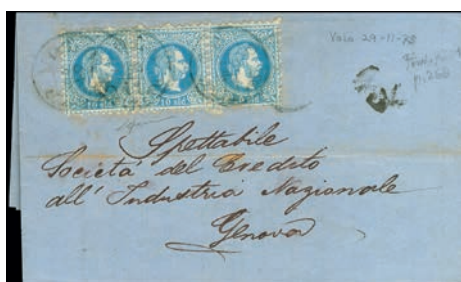 Volo 29-11-73
10 sld 10 sld 10 sld
Spettabile
Società del Credito
all' Industria Nazionale
Genova